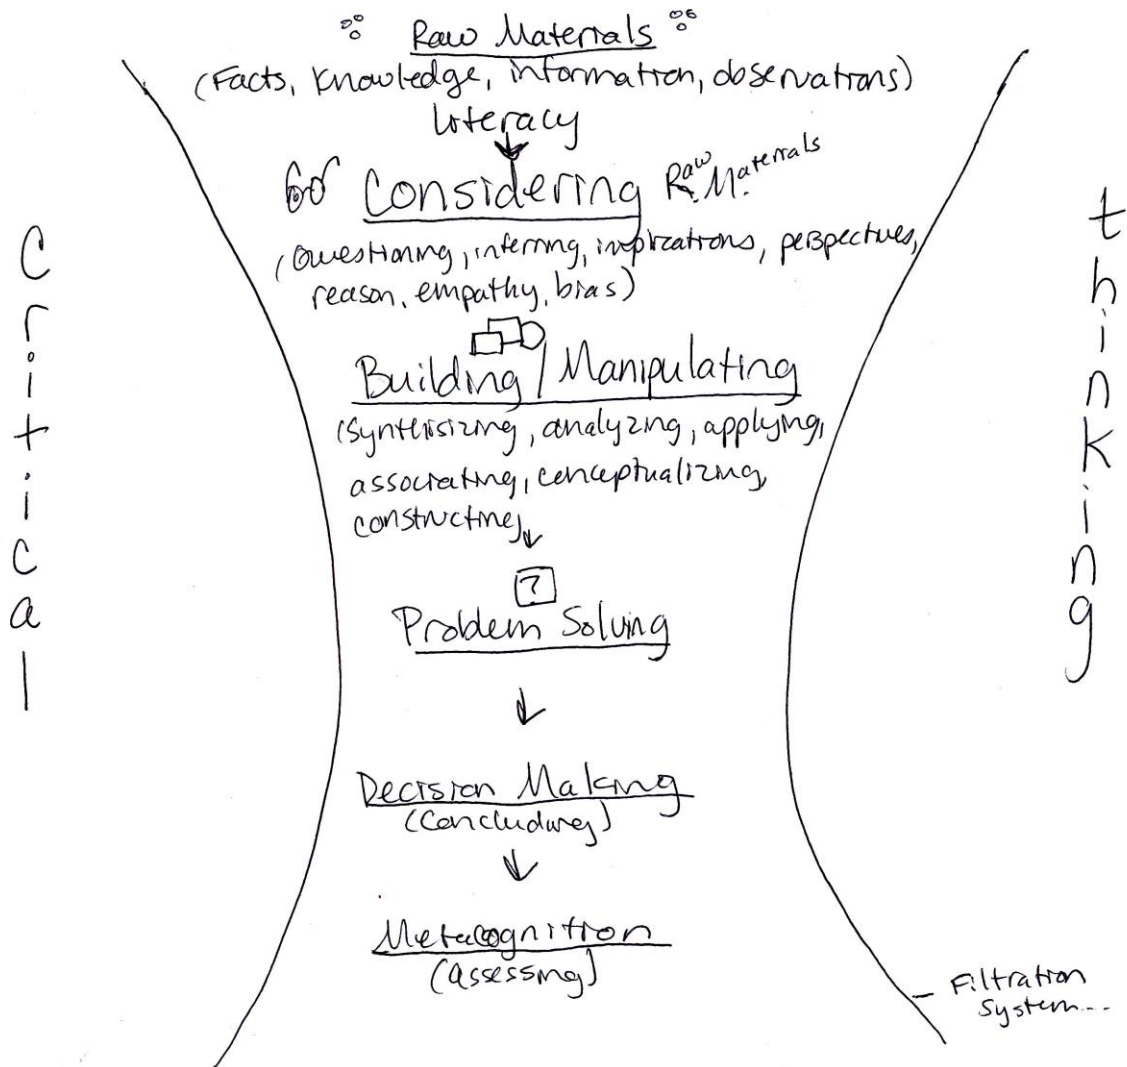 Raw Materials
(Facts, Knowledge, information, observations)
literacy
Considering Raw Materials
(Questioning, inferring, implications, perspectives,
reason, empathy, bias)
Building / Manipulating
(Synthisizing, analyzing, applying,
associating, conceptualizing,
constructing)
?
Problem Solving
Decision Making
(Concluding)
Metacognition
(assessing)
Critical
thinking
Filtration
System...